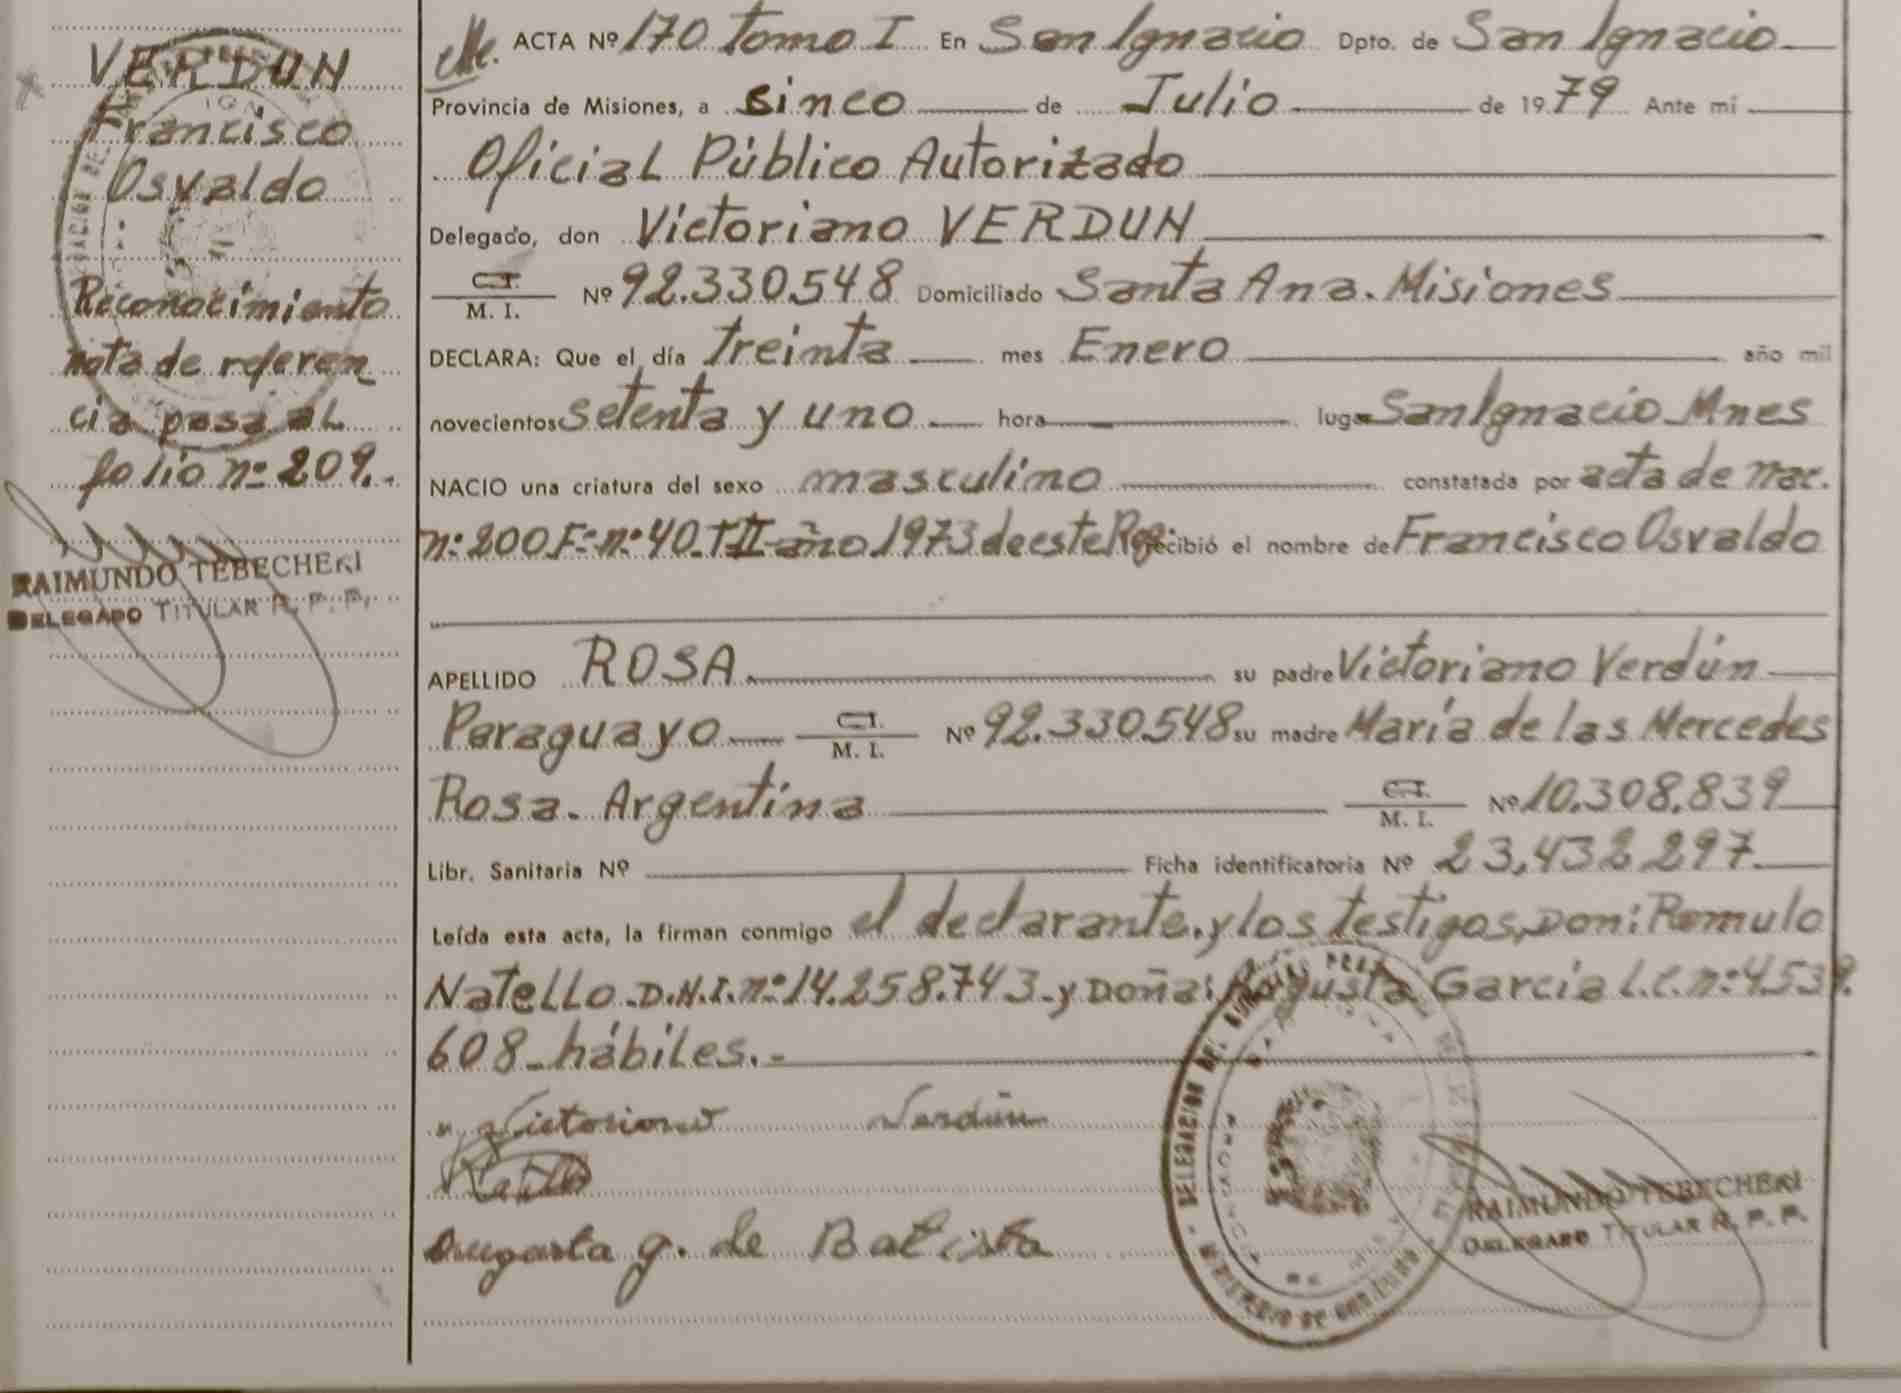 VERDUN
Francisco
Osvaldo
Reconocimiento
nota de referen
cia pasa al
folio nº 209.-
RAIMUNDO TEBECHERI
DELEGADO TITULAR R. P. P.
ACTA Nº 170 tomo I En San Ignacio Dpto. de San Ignacio
Provincia de Misiones, a sinco de Julio de 1979 Ante mí
Oficial Público Autorizado
Delegado, don Victoriano VERDUN
C.I.
M. I. Nº 92.330.548 Domiciliado Santa Ana. Misiones
DECLARA: Que el día treinta mes Enero año mil
novecientos setenta y uno hora lugar San Ignacio Mnes
NACIO una criatura del sexo masculino constatada por acta de nac.
nº 200 Fº nº 40 T II año 1973 de este Reg. recibió el nombre de Francisco Osvaldo
APELLIDO ROSA su padre Victoriano Verdún
Paraguayo C.I.
M. I. Nº 92.330.548 su madre María de las Mercedes
Rosa. Argentina C.I.
M. I. Nº 10.308.839
Libr. Sanitaria Nº Ficha identificatoria Nº 23,432 297
Leída esta acta, la firman conmigo el declarante, y los testigos, Don: Romulo
Natello. D.N.I. nº 14.258.743 - y Doña: Augusta Garcia L.C. nº 4.539.
608 - hábiles.-
Victoriano Verdún
Augusta g. de Batista
RAIMUNDO TEBECHERI
DELEGADO TITULAR R. P. P.